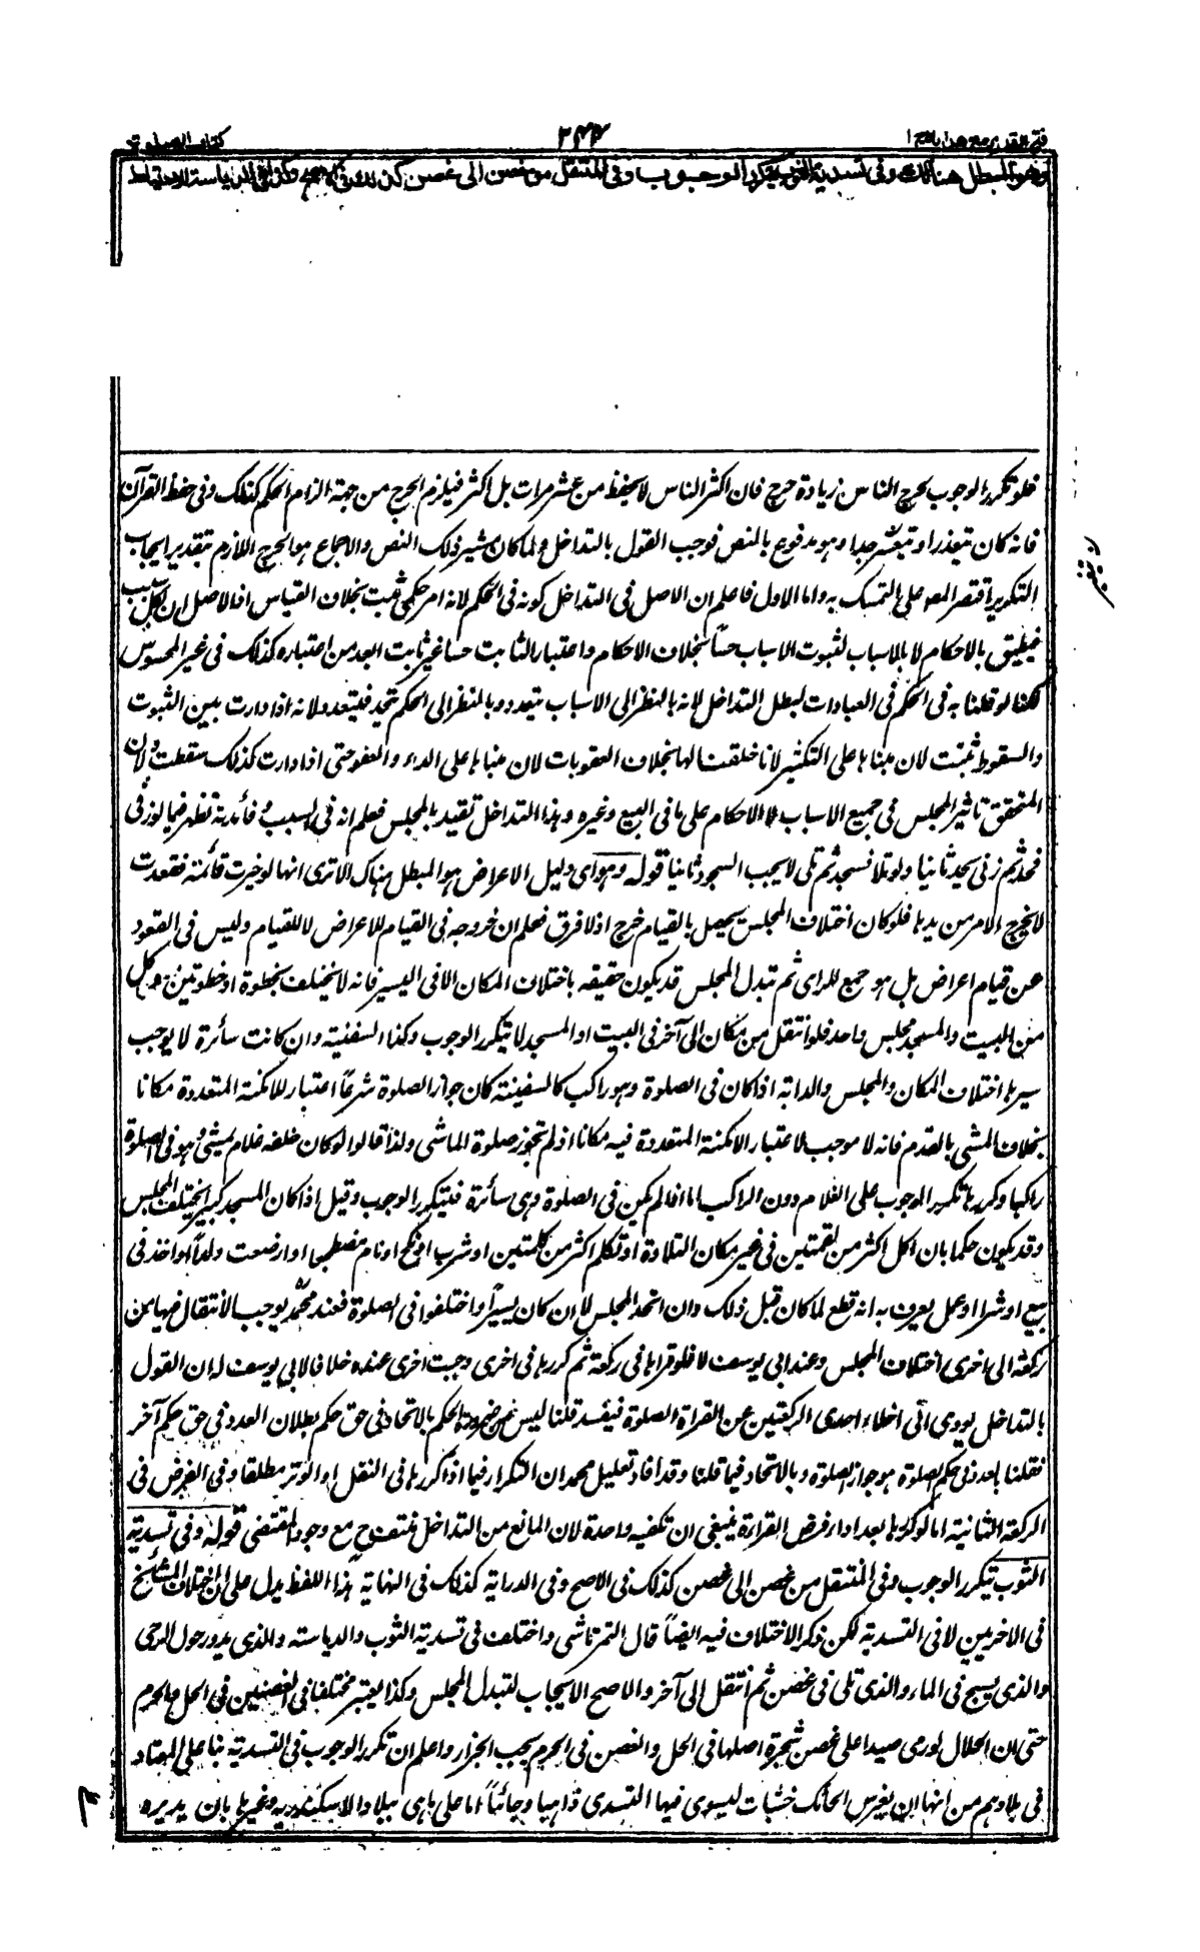 فتح القدير مع هداية ج ١
٣٤٤
كتاب الصلوة
وهو المبطل هنالك وفى تسدية الثوب يتكرر الوجوب وفى المنتقل من غصن الى غصن كذلك فى الاصح وكذا فى الدياسة للاحتياط
فلو تكرر الوجوب لحرج الناس زيادة حرج فان اكثر الناس لا يحفظ من عشر مرات بل اكثر فيلزم الحرج من جهة الزام الحكم كذلك وفى حفظ القرآن
فانه كان يتعذر او يتعسر جدا وهو مدفوع بالنص فوجب القول بالتداخل ولما كان مشير ذلك النص والاجماع هو الحرج اللازم بتقدير ايجاب
التكرير اقتصر المصـ على التمسك به واما الاول فاعلم ان الاصل فى التداخل كونه فى الحكم لانه امر حكمى ثبت بخلاف القياس اذ الاصل ان لكل سبب
فيليق بالاحكام لا بالاسباب لثبوت الاسباب حسا بخلاف الاحكام واعتبار الثابت حسا غير ثابت ابعد من اعتباره كذلك فى غير المحسوس
لكنا لو قلنا به فى الحكم فى العبادات لبطل التداخل لانه بالنظر الى الاسباب يتعدد وبالنظر الى الحكم يتحد فيتعدد لانه اذا دارت بين الثبوت
والسقوط ثبتت لان مبناها على التكثير لانا خلقنا لها بخلاف العقوبات لان مبناها على الدرء والعفو حتى اذا دارت كذلك سقطت ولان
المتحقق تاثير المجلس فى جميع الاسباب لا الاحكام على ما فى البيع وغيره وهذا التداخل تقيد بالمجلس فعلم انه فى السبب وفائدته تظهر فيما لو زنى
فحد ثم زنى يحد ثانيا ولو تلا فسجد ثم تلى لا يجب السجود ثانيا قوله وهو اى دليل الاعراض هو المبطل هناك الا ترى انها لو خيرت قائمة فقعدت
لا يخرج الامر من يدها فلو كان اختلاف المجلس يحصل بالقيام خرج اذ لا فرق فعلم ان خروجه فى القيام للاعراض لا للقيام وليس فى القعود
عن قيام اعراض بل هو جمع للراى ثم تبدل المجلس قد يكون حقيقه باختلاف المكان الا فى اليسير فانه لا يختلف بخطوة او خطوتين وكل
من البيت والمسجد مجلس واحد فلو انتقل من مكان الى آخر فى البيت او المسجد لا يتكرر الوجوب وكذا السفينة وان كانت سائرة لا يوجب
سيرها اختلاف المكان والمجلس والدابة اذا كان فى الصلوة وهو راكب كالسفينة كان جواز الصلوة شرعاً اعتبار للامكنة المتعددة مكانا
بخلاف المشى بالقدم فانه لا موجب لاعتبار الامكنة المتعددة فيه مكانا اذ لم تجوز صلوة الماشى ولذا قالوا لو كان خلفه غلام يمشى وهو فى الصلوة
راكبا وكررها تكرر الوجوب على الغلام دون الراكب اما اذا لم يكن فى الصلوة وهى سائرة فيتكرر الوجوب وقيل اذا كان المسجد كبيرا يختلف المجلس
وقد يكون حكما بان اكل اكثر من لقمتين فى غير مكان التلاوة او تكلم اكثر من كلمتين او شرب او نكح او نام مضطجعا او ارضعت ولدا او اخذ فى
بيع او شراء او عمل يعرف به انه قطع لما كان قبل ذلك وان اتحد المجلس لا ان كان يسيراً واختلفوا فى الصلوة فعند محمد يوجب الانتقال فيها من
ركعة الى اخرى اختلاف المجلس وعند ابى يوسف لا فلو قراها فى ركعة ثم كررها فى اخرى وجبت اخرى عنده خلافا لابى يوسف له ان القول
بالتداخل يودى الى اخلاء احدى الركعتين عن القراة الصلوة فيفسد قلنا ليس من ضرورة الحكم بالاتحاد فى حق حكم بطلان العدد فى حق حكم آخر
فقلنا بالعدد فى حكم الصلوة هو جواز الصلوة وبالاتحاد فيما قلنا وقد افاد تعليل محمد ان التكرار فيما اذا كررها فى النفل او الوتر مطلقا وفى الفرض فى
الركعة الثانية اما لو كررها بعد اداء فرض القراءة ينبغى ان تكفيه واحدة لان المانع من التداخل منتف ح مع وجود المقتضى قوله وفى تسدية
الثوب يتكرر الوجوب وفى المنتقل من غصن الى غصن كذلك فى الاصح وفى الدراية كذلك فى النهاية هذا اللفظ يدل على ان اختلاف المشايخ
فى الاخريين لا فى التسدية لكن ذكر الاختلاف فيه ايضاً قال التمرتاشى واختلف فى تسدية الثوب والدياسته والذى يدور حول الرحى
والذى يسبح فى الماء والذى تلى فى غصن ثم انتقل الى آخر والاصح الايجاب لتبدل المجلس وكذا يعتبر مختلفا فى الغصنين فى الحل والحرم
حتى ان الحلال لو رمى صيدا على غصن شجرة اصلها فى الحل والغصن فى الحرم يجب الجزاء واعلم ان تكرر الوجوب فى التسدية بنا على المعتاد
فى بلادهم من انها ان يغرس الحائك خشبات ليسوى فيها التسدى ذاهبا وجائياً اما على ما هى ببلاد الاسكندرية وغيرها بان يديره